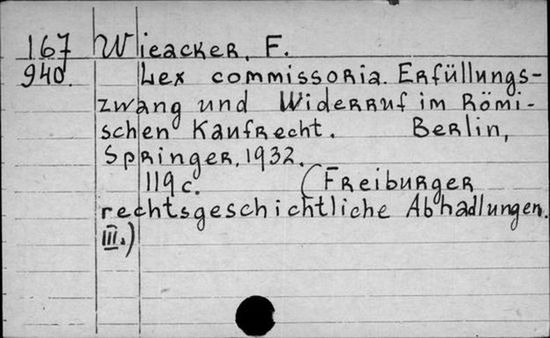 167 Wieacker, F.
940. Lex commissoria. Erfüllungs-
zwang und Widerruf im Römi-
schen Kaufrecht. Berlin,
Springer, 1932.
119 c. (Freiburger
rechtsgeschichtliche Abhadlungen.
III.)